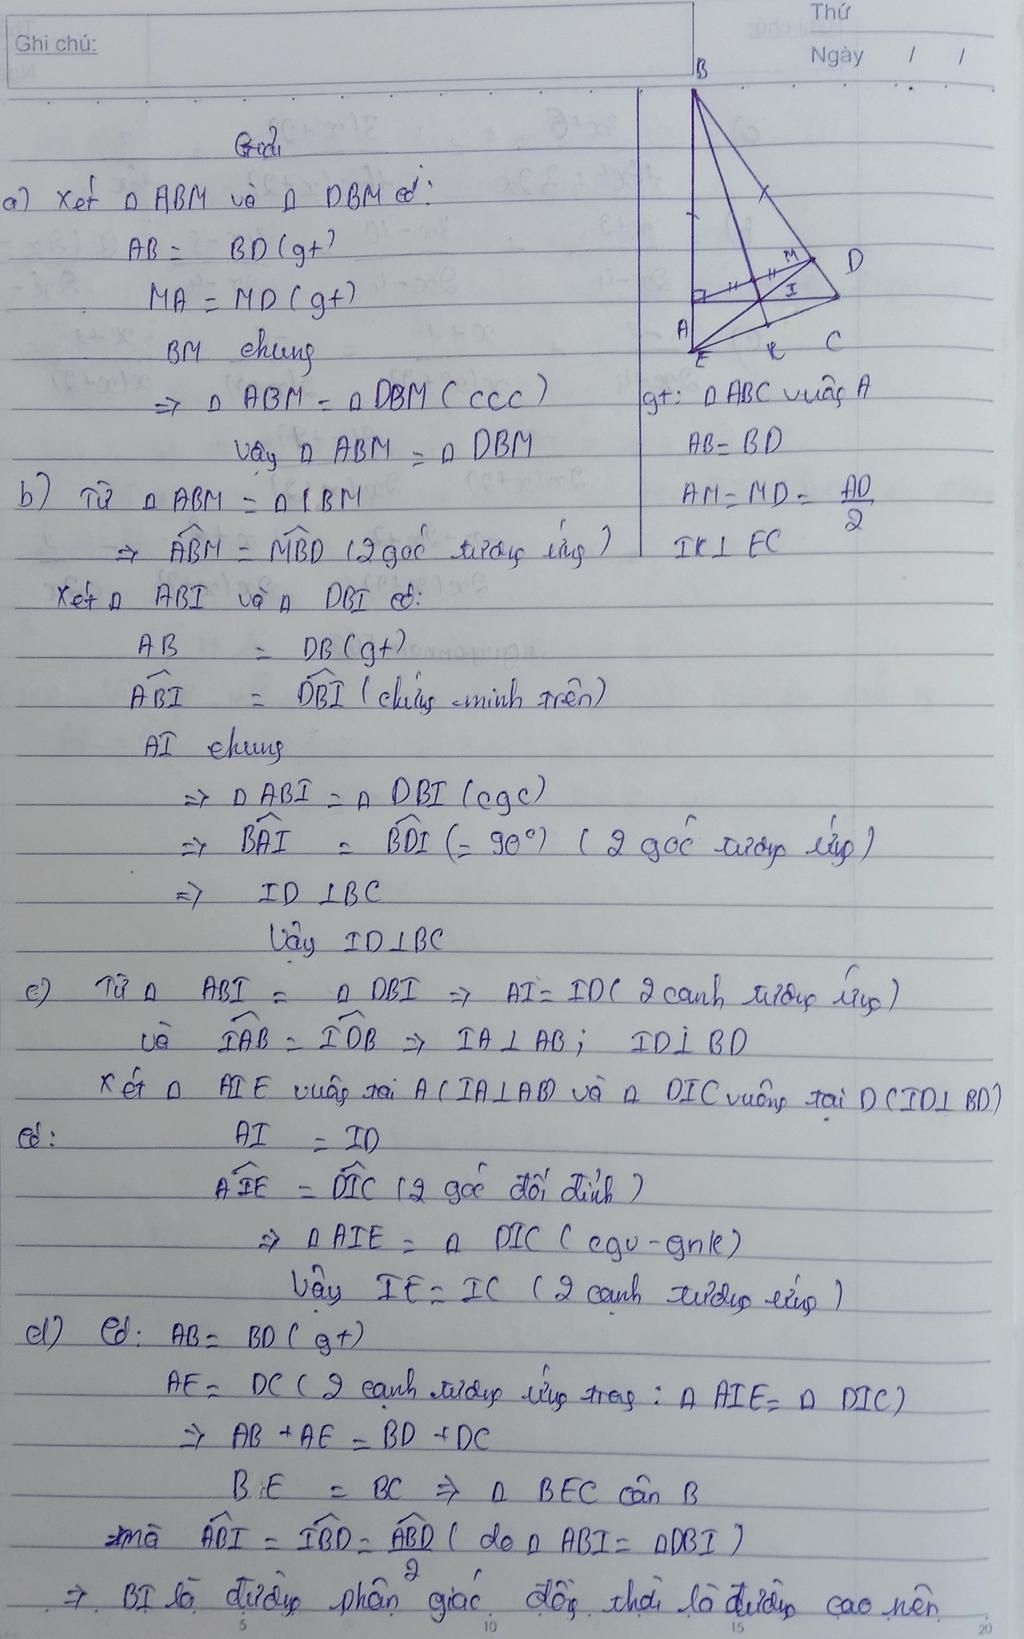 Thứ
Ghi chú:
Ngày / /
B
Giải
a) Xét Δ ABM và Δ DBM có:
AB = BD (gt)
MA = MD (gt)
BM chung
⇒ Δ ABM = Δ DBM (ccc)
Vậy Δ ABM = Δ DBM
M D
I
A
E K C
gt: Δ ABC vuông A
AB = BD
AM = MD = AD/2
IK ⊥ EC
b) Từ Δ ABM = Δ DBM
⇒ ABM̂ = MBD̂ (2 góc tương ứng)
Xét Δ ABI và Δ DBI có:
AB = DB (gt)
ABÎ = DBÎ (chứng minh trên)
AI chung
⇒ Δ ABI = Δ DBI (cgc)
⇒ BAÎ = BDÎ (= 90°) (2 góc tương ứng)
⇒ ID ⊥ BC
Vậy ID ⊥ BC
c) Từ Δ ABI = Δ DBI ⇒ AI = ID (2 canh tương ứng)
và IAB̂ = IDB̂ ⇒ IA ⊥ AB; ID ⊥ BD
Xét Δ AIE vuông tại A (IA ⊥ AB) và Δ DIC vuông tại D (ID ⊥ BD)
có: AI = ID
AIÊ = DIĈ (2 góc đối đỉnh)
⇒ Δ AIE = Δ DIC (cgv - gnk)
Vậy IE = IC (2 cạnh tương ứng)
d) Có: AB = BD (gt)
AE = DC (2 cạnh tương ứng trong: Δ AIE = Δ DIC)
⇒ AB + AE = BD + DC
BE = BC ⇒ Δ BEC cân B
mà ABÎ = IBD̂ = ABD̂/2 (do Δ ABI = ΔDBI)
⇒ BI là đường phân giác đồng thời là đường cao nên
5 10 15 20